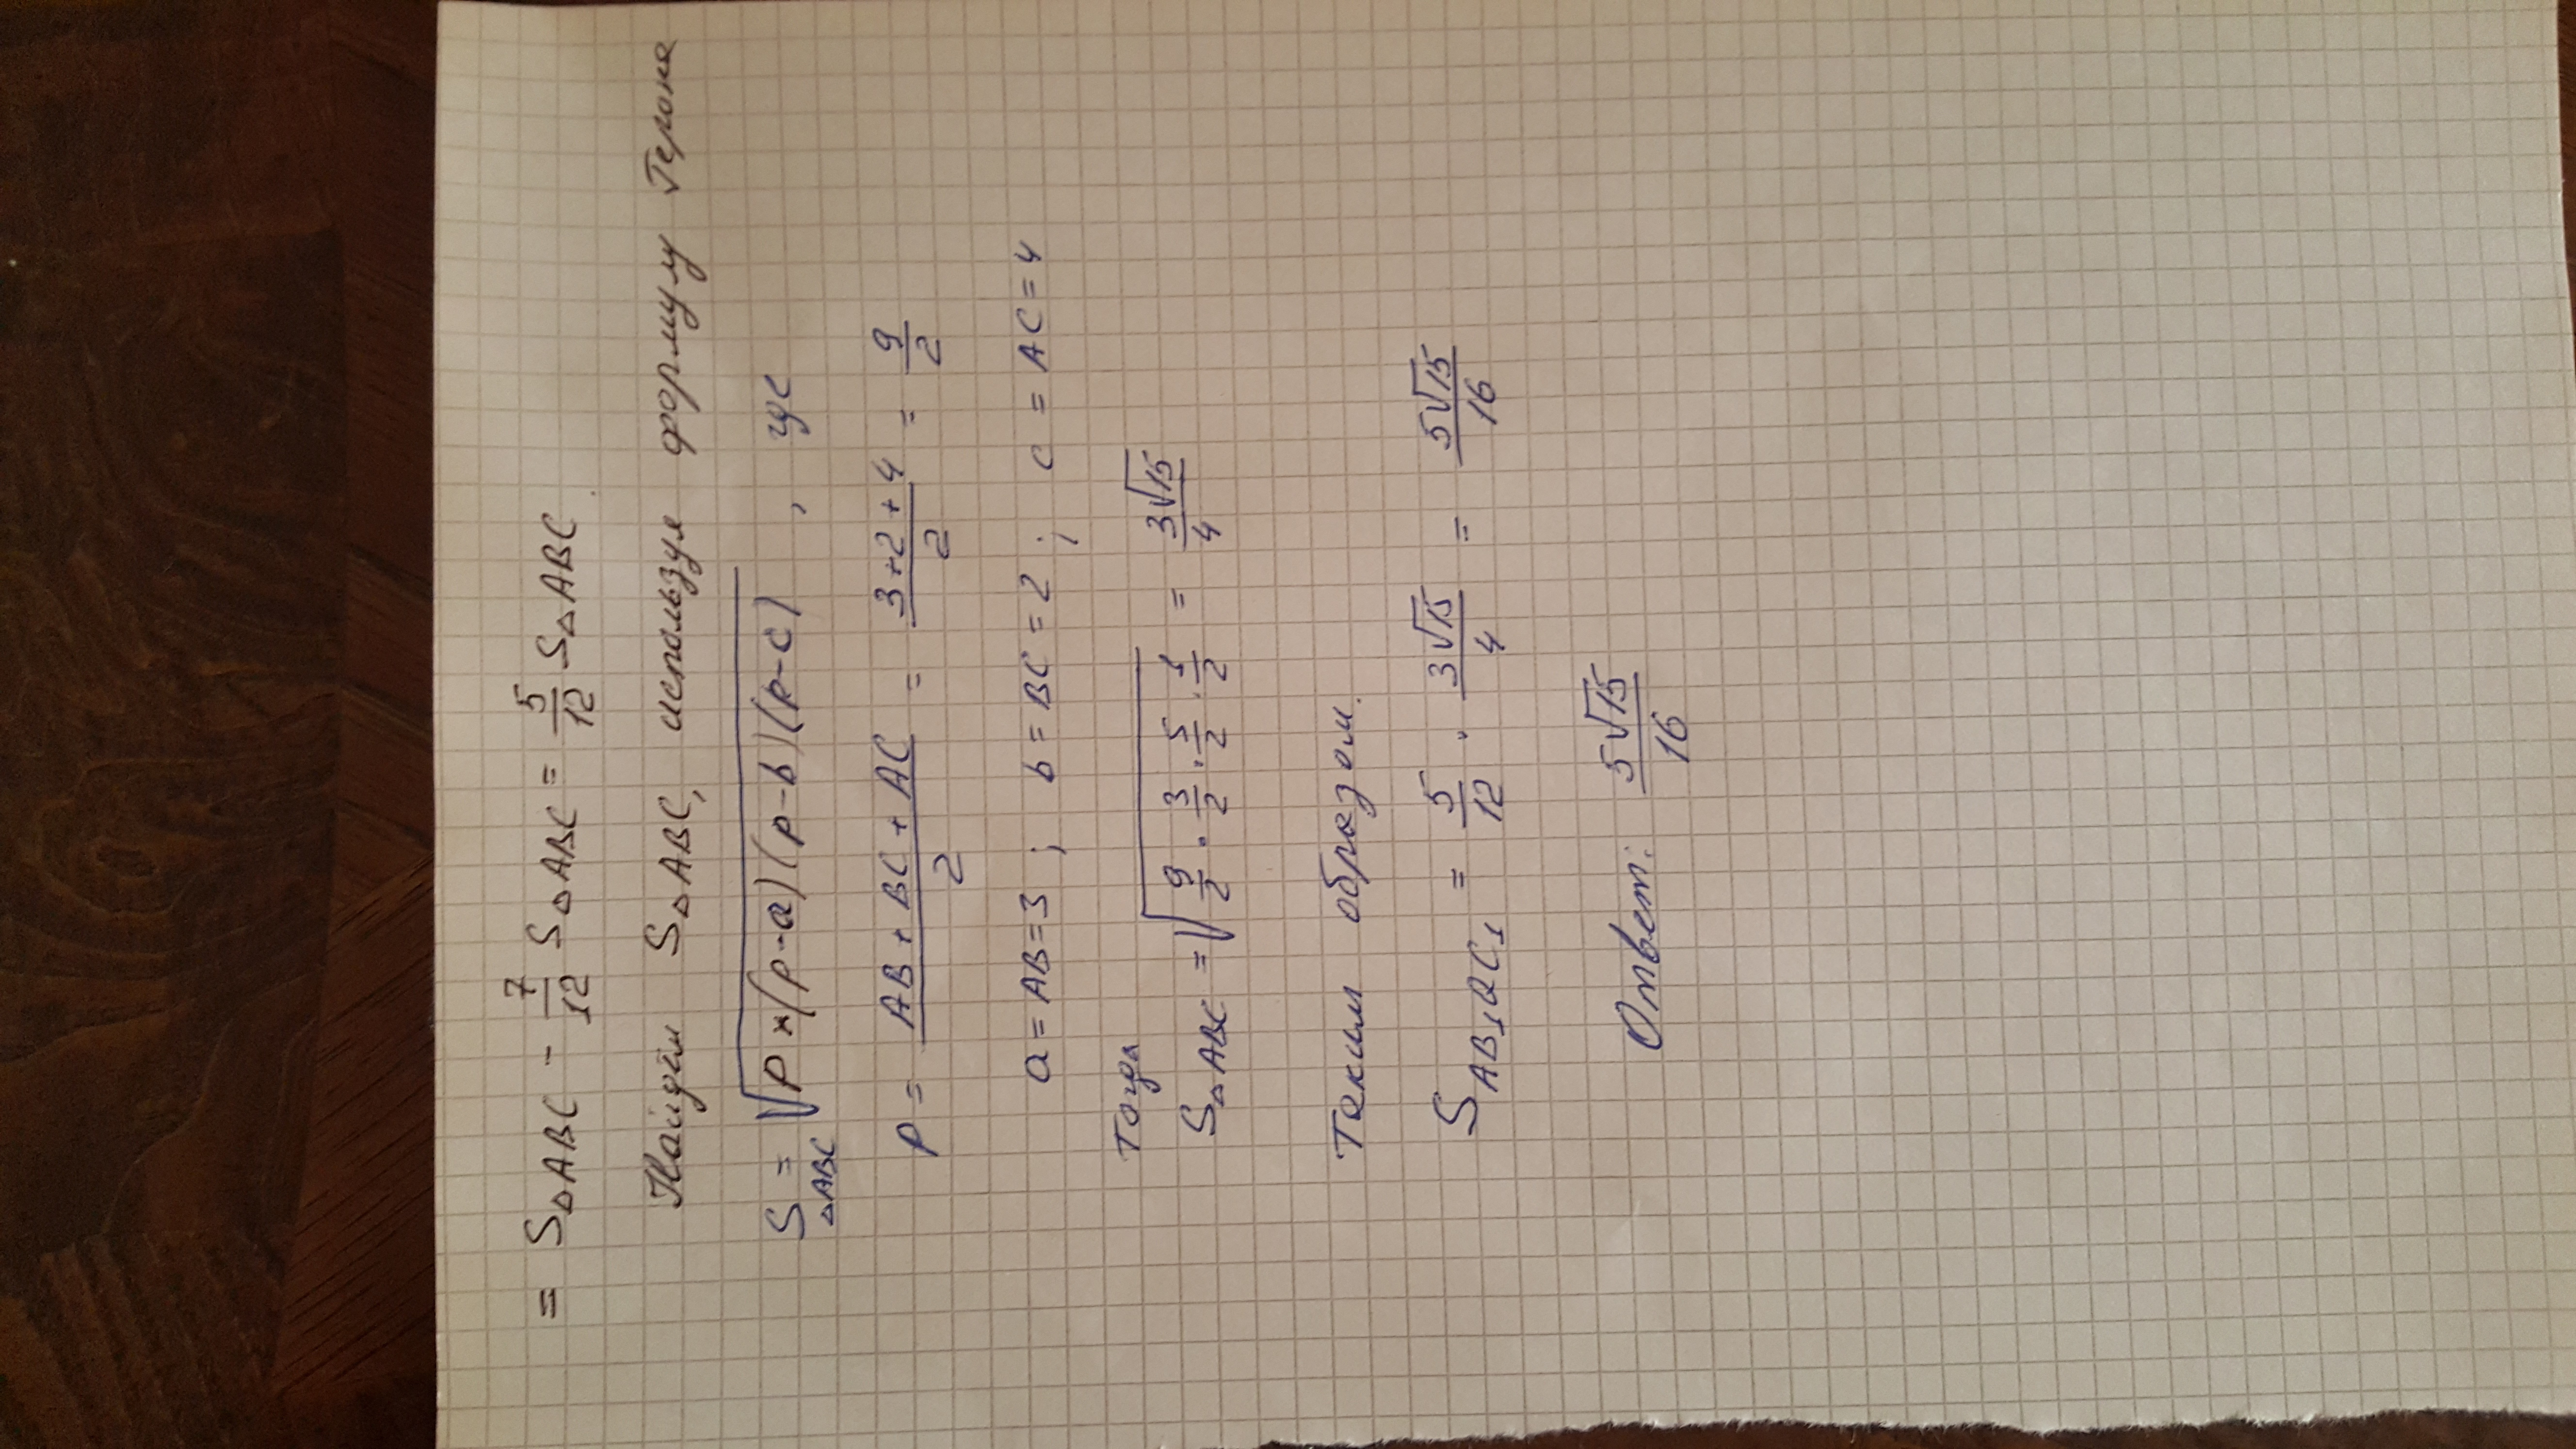 = S△ABC - 7/12 S△ABC = 5/12 S△ABC
Найдём S△ABC, используя формулу Герона
S△ABC = √(p*(p-a)(p-b)(p-c)), где
p = (AB+BC+AC)/2 = (3+2+4)/2 = 9/2
a=AB=3 ; b=BC=2 ; c=AC=4
Тогда
S△ABC = √(9/2 · 3/2 · 5/2 · 1/2) = 3√15/4
Таким образом.
S AB₁QC₁ = 5/12 · 3√15/4 = 5√15/16
Ответ: 5√15/16